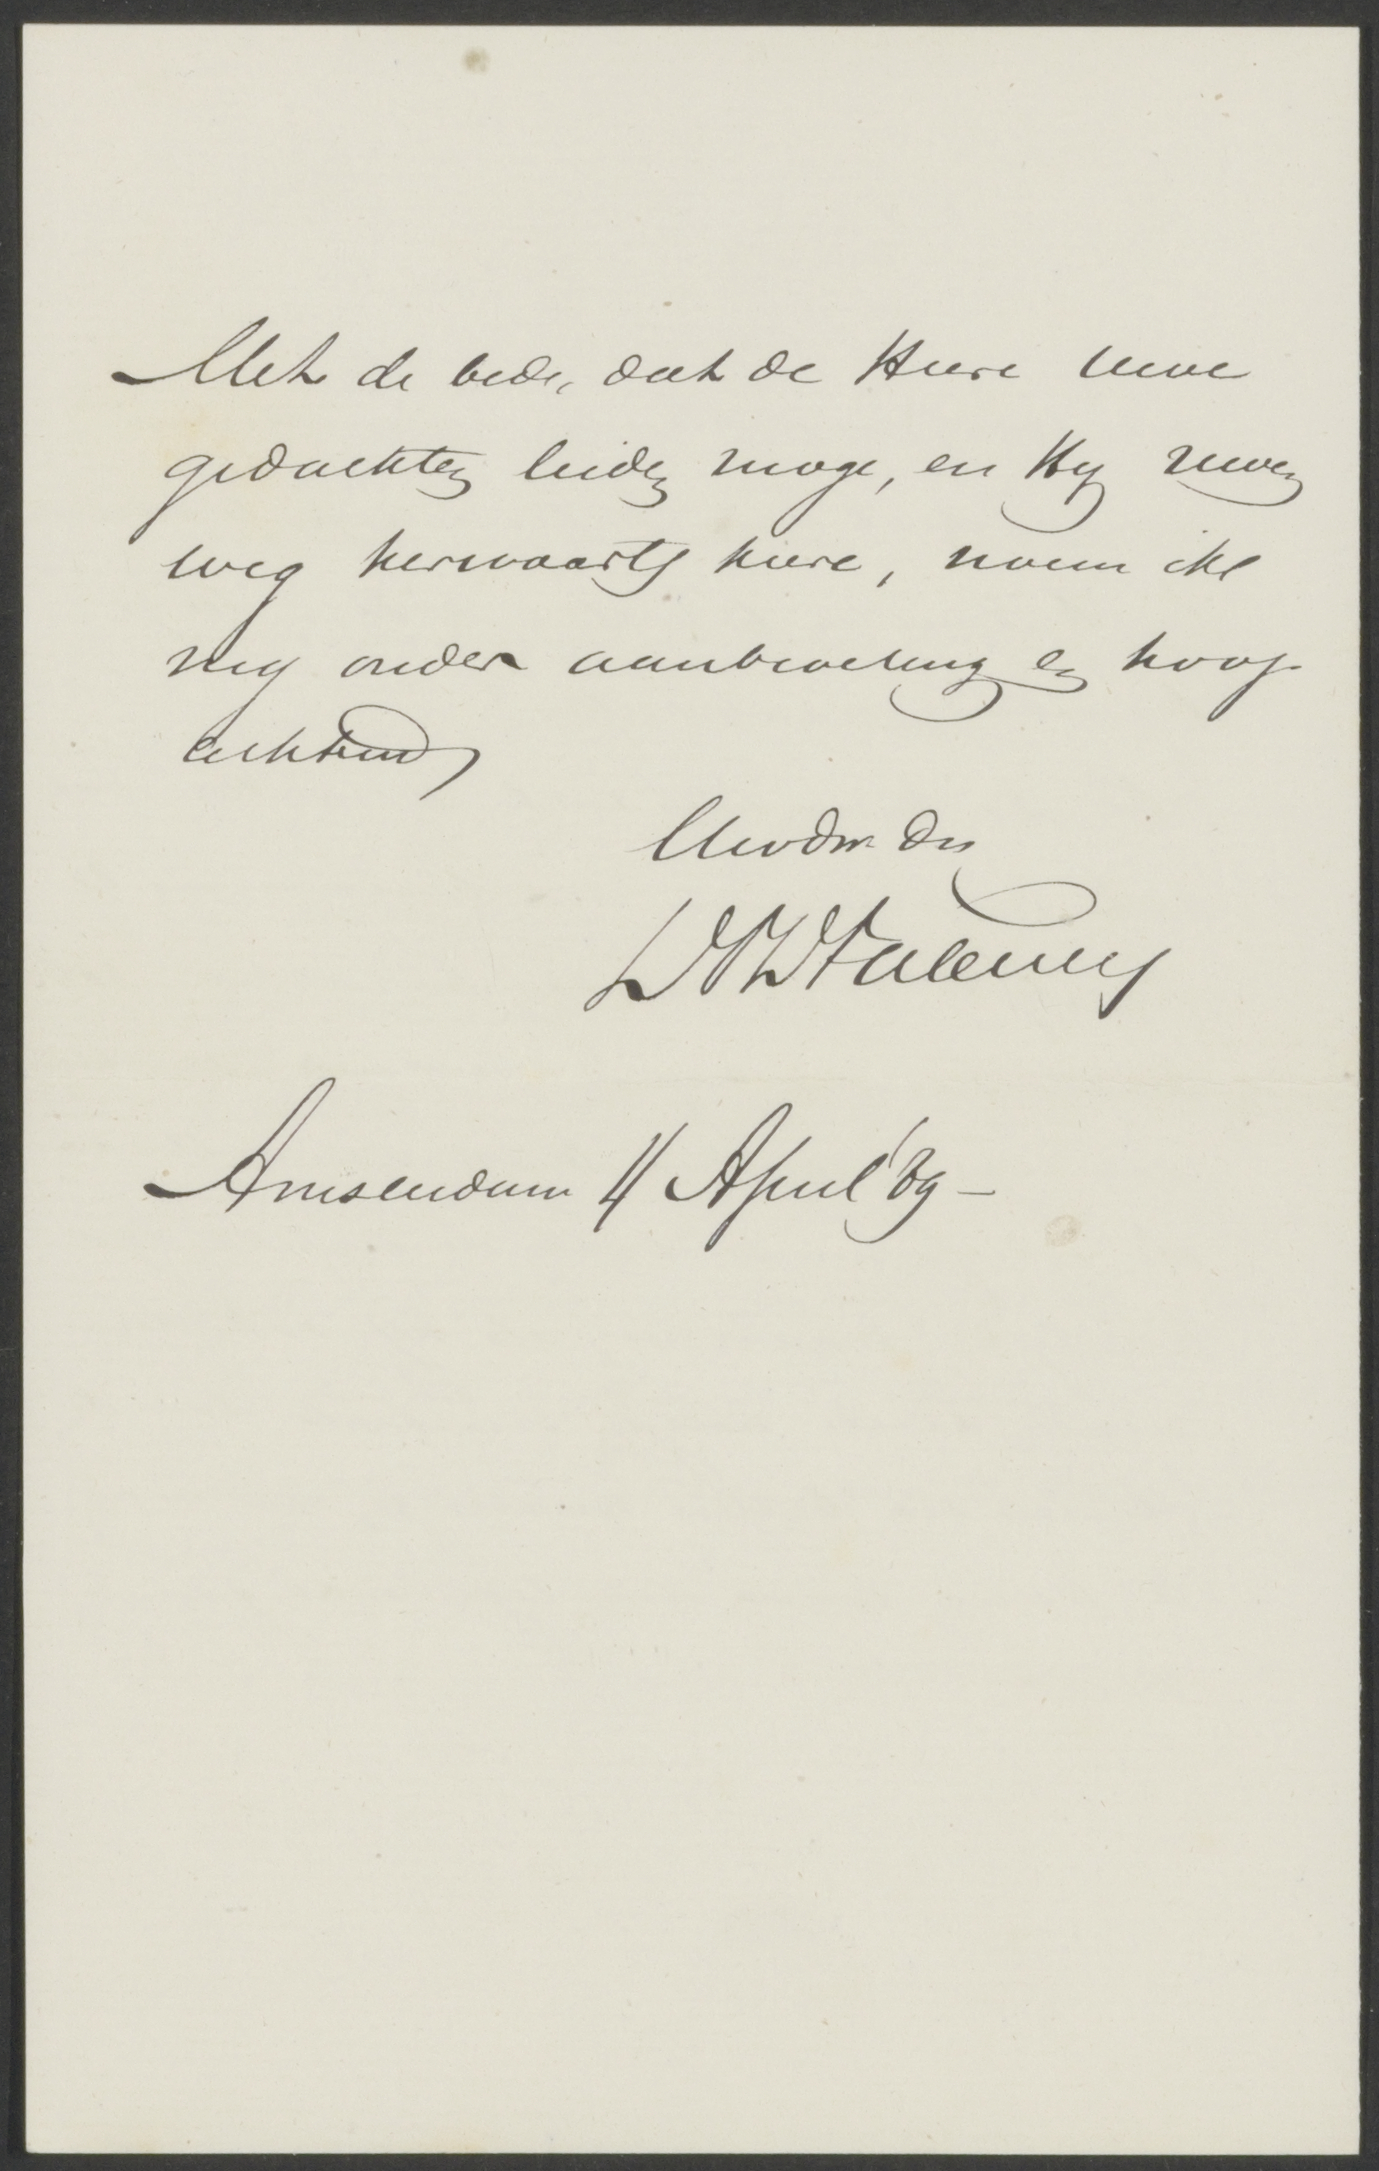 Met de bede, dat de Heere uwe
gedachten leiden moge, en Hy uwen
weg herwaarts keere, noem ik
my onder aanbeveling en hoog-
achtend
Uwdw. Dr
Amsterdam 4 April '89 -